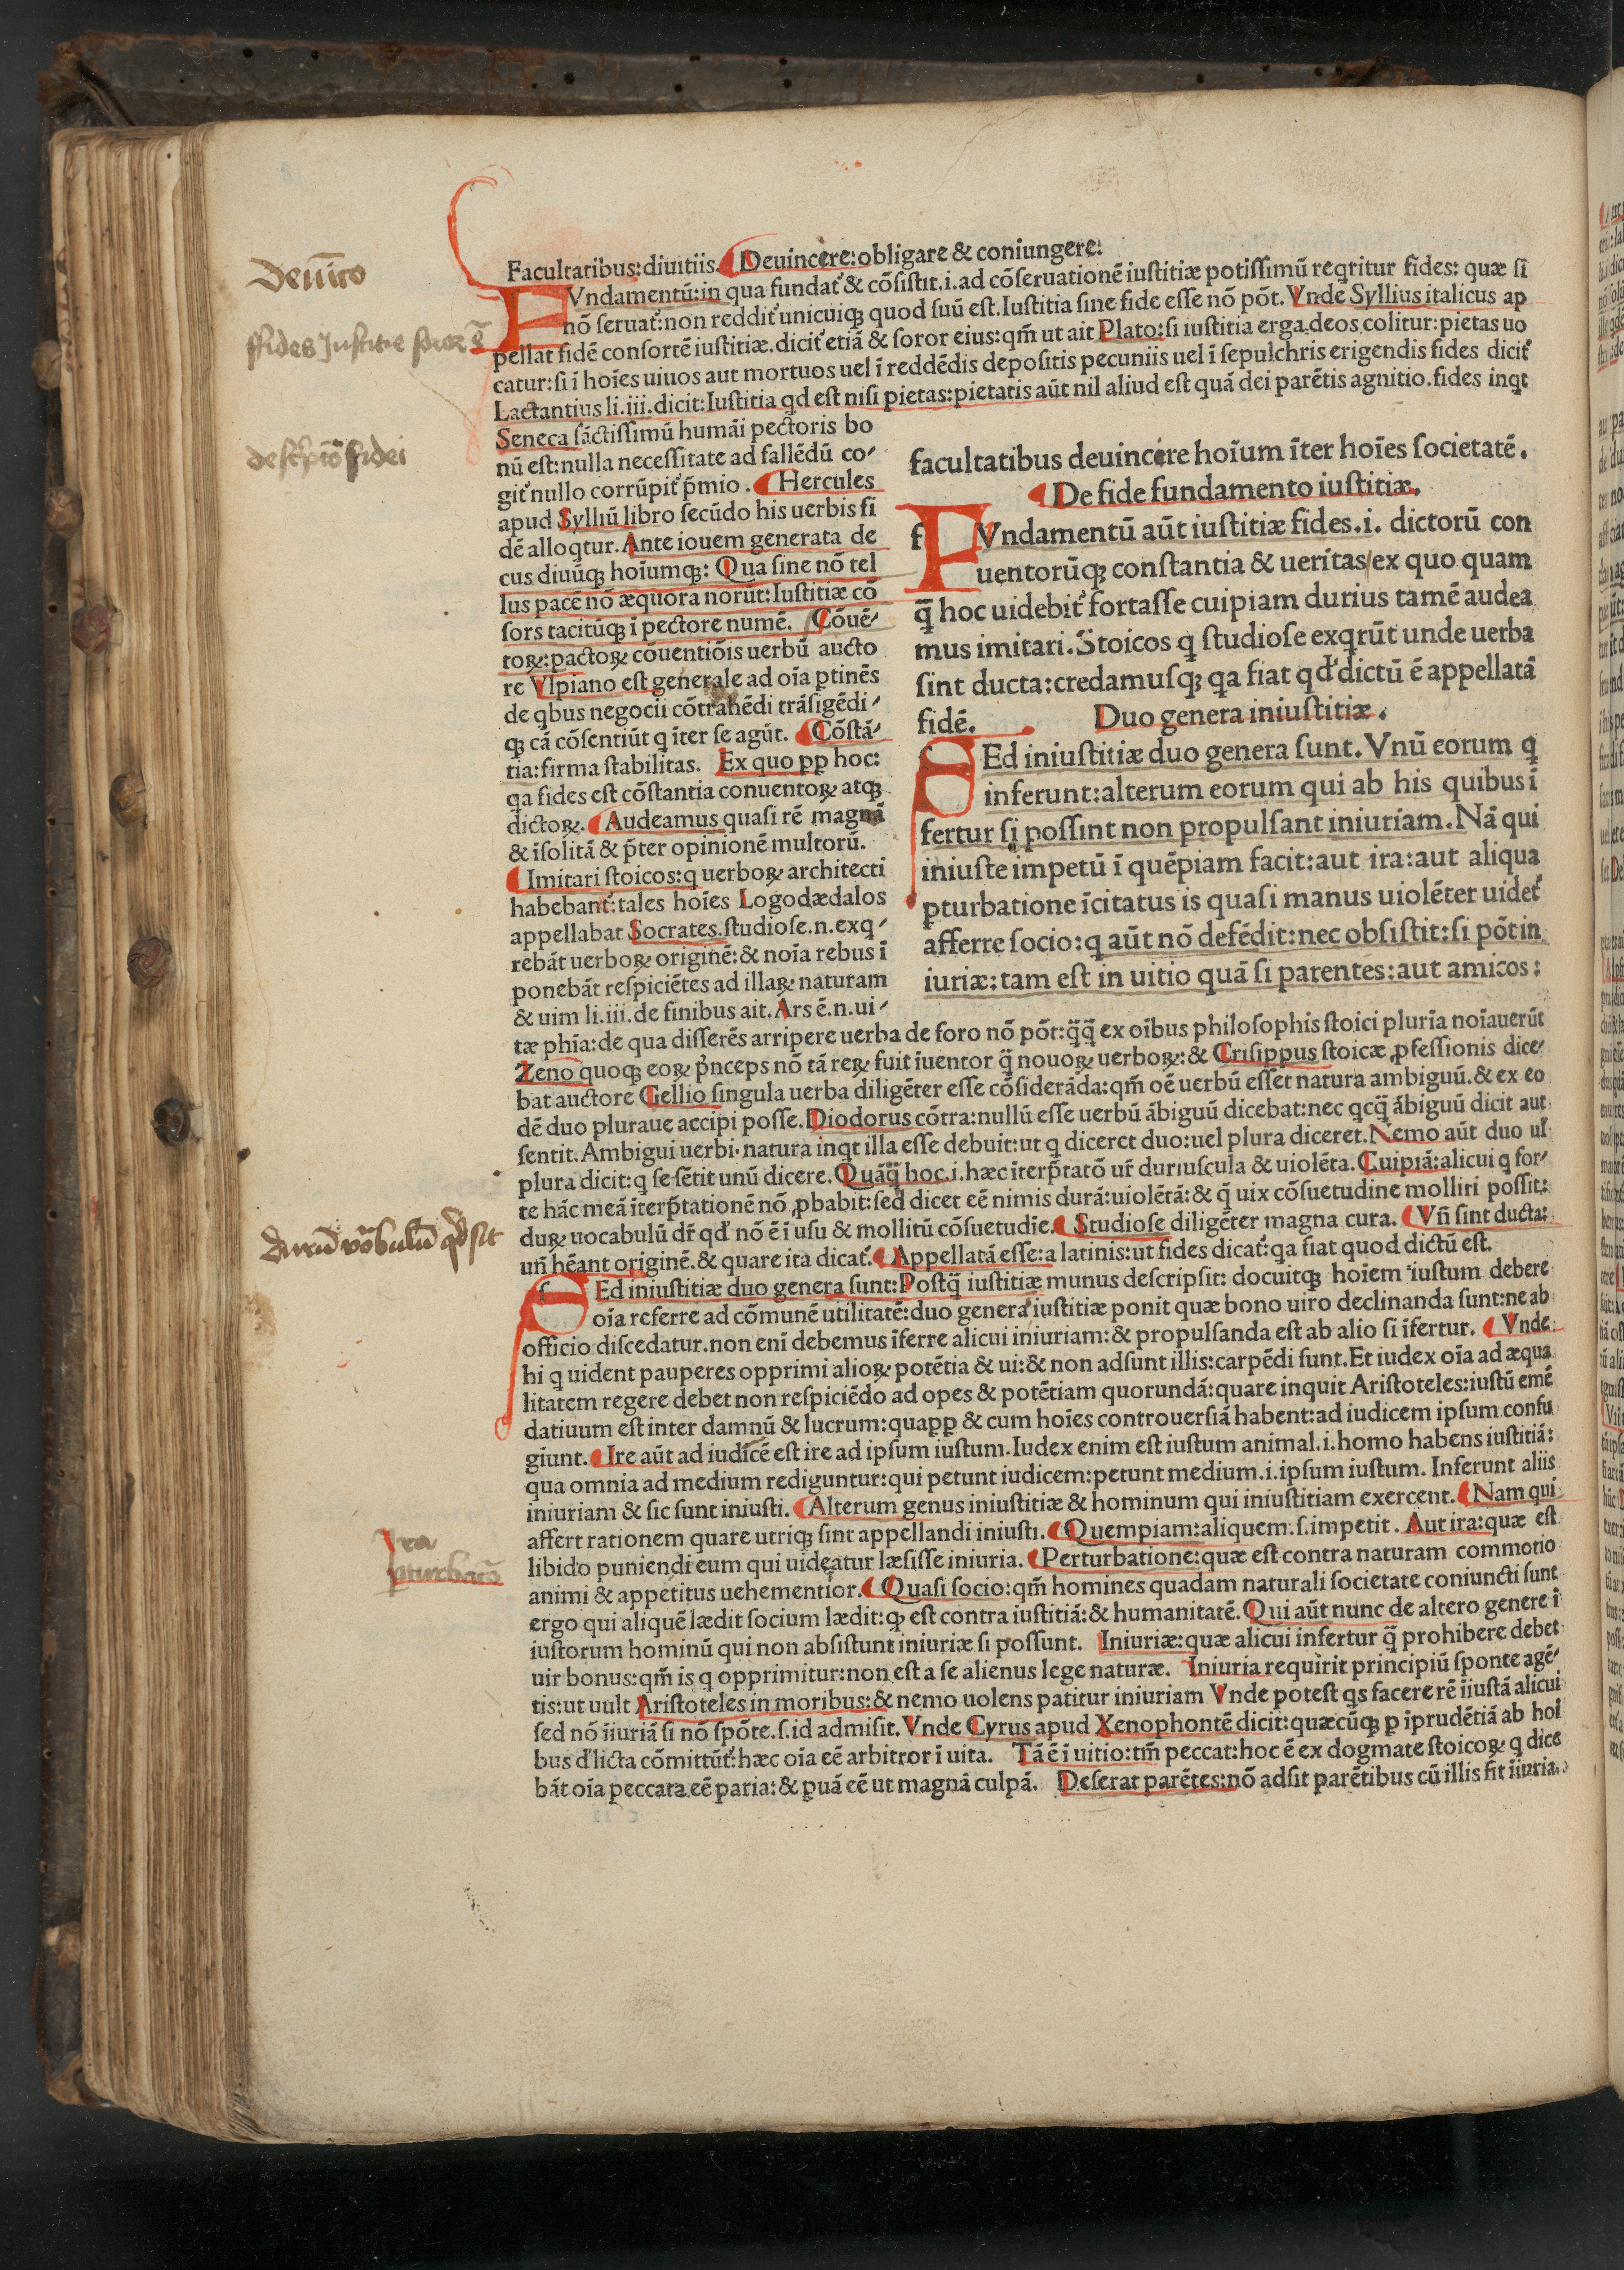 Deui̅co
ffides Justitie soror e̅
descriptio̅ fidei
Duru̅ vo̅bulu̅ qd sit
Ira
pturbatio̅
Facultatibus: diuitiis. ¶ Deuincere: obligare & coniungere:
FVndamentū: in qua fundat᷒ & cōſiſtit.i.ad cōſeruationē iuſtitiæ potiſſimū reqritur fides: quæ ſi
nō ſeruat᷒: non reddit᷒ unicuiqꝫ quod ſuū eſt. Iuſtitia ſine fide eſſe nō pōt. Vnde Syllius italicus ap
pellat fidē conſortē iuſtitiæ. dicit᷒ etiā & ſoror eius: qm̄ ut ait Plato: ſi iuſtitia erga deos colitur: pietas uo
catur: ſi ī hoīes uiuos aut mortuos uel ī reddēdis depoſitis pecuniis uel ī ſepulchris erigendis fides dicit᷒
Lactantius li.iii.dicit: Iuſtitia qd eſt niſi pietas: pietatis aūt nil aliud eſt quā dei parētis agnitio. fides inqt
Seneca ſāctiſſimū humāi pectoris bo
nū eſt: nulla neceſſitate ad fallēdū co⸗
git᷒ nullo corrūpit᷒ p̄mio. ¶ Hercules
apud Sylliū libro ſecūdo his uerbis fi
dē alloqtur. Ante iouem generata de
cus diuūqꝫ hoīumqꝫ: Qua ſine nō tel
lus pacē nō æquora norūt: Iuſtitiæ cō
ſors tacitūqꝫ ī pectore numē. Cōuē⸗
toꝝ: pactoꝝ cōuentiōis uerbū aucto
re Vlpiano eſt generale ad oīa ꝑtinēs
de qbus negocii cōtrahēdi trāſigēdi⸗
qꝫ cā cōſentiūt q īter ſe agūt. ¶ Cōſtā⸗
tia: firma ſtabilitas. Ex quo pp hoc:
qa fides eſt cōſtantia conuentoꝝ atqꝫ
dictoꝝ. ¶ Audeamus quaſi rē magnā
& īſolitā & p̄ter opinionē multorū.
¶ Imitari ſtoicos: q uerboꝝ architecti
habebant᷒: tales hoīes Logodædalos
appellabat Socrates. ſtudioſe.n.exq⸗
rebāt uerboꝝ originē: & noīa rebus ī
ponebāt reſpiciētes ad illaꝝ naturam
& uim li.iii.de finibus ait. Ars ē.n.ui⸗
facultatibus deuincere hoīum īter hoīes ſocietatē.
¶ De fide fundamento iuſtitiæ.
f FVndamentū aūt iuſtitiæ fides.i. dictorū con
uentorūqꝫ conſtantia & ueritas/ex quo quam
q̄ hoc uidebit᷒ fortaſſe cuipiam durius tamē audea
mus imitari. Stoicos q ſtudioſe exqrūt unde uerba
ſint ducta: credamuſqꝫ qa fiat qđ dictū ē appellatā
fidē. Duo genera iniuſtitiæ.
SEd iniuſtitiæ duo genera ſunt. Vnū eorum q
inferunt: alterum eorum qui ab his quibus ī
fertur ſi poſſint non propulſant iniuriam. Nā qui
iniuſte impetū ī quēpiam facit: aut ira: aut aliqua
ꝑturbatione īcitatus is quaſi manus uiolēter uidet᷒
afferre ſocio: q aūt nō defēdit: nec obſiſtit: ſi pōt in
iuriæ: tam eſt in uitio quā ſi parentes: aut amicos:
tæ phīa: de qua differēs arripere uerba de foro nō pōt: q̄q̄ ex oībus philoſophis ſtoici plurīa noīauerūt
Zeno quoqꝫ eoꝝ p̄nceps nō tā reꝝ fuit īuentor q̄ nouoꝝ uerboꝝ: & Criſippus ſtoicæ ꝓfeſſionis dice⸗
bat auctore Gellio ſingula uerba diligēter eſſe cōſiderāda: qm̄ oē uerbū eſſet natura ambiguū. & ex eo
dē duo pluraue accipi poſſe. Diodorus cōtra: nullū eſſe uerbū ābiguū dicebat: nec qcq̄ ābiguū dicit aut
ſentit. Ambigui uerbi natura inqt illa eſſe debuit: ut q diceret duo: uel plura diceret. Nemo aūt duo uł
plura dicit: q ſe ſētit unū dicere. Quāq̄ hoc.i. hæc īterp̄tatō ur̄ duriuſcula & uiolēta. Cuipiā: alicui q for⸗
te hāc meā īterp̄tationē nō ꝓbabit: ſed dicet eē nimis durā: uiolētā: & q̄ uix cōſuetudine molliri poſſit:
duꝝ uocabulū dr̄ qđ nō ē ī uſu & mollitū cōſuetudīe. ¶ Studioſe diligēter magna cura. ¶ Vn̄ ſint ducta:
un̄ hēant originē. & quare ita dicat᷒. ¶ Appellatā eſſe: a latinis: ut fides dicat᷒: qa fiat quod dictū eſt.
SEd iniuſtitiæ duo genera ſunt: Poſtq̄ iuſtitiæ munus deſcripſit: docuitqꝫ hoīem iuſtum debere
oīa referre ad cōmunē utilitatē: duo genera iuſtitiæ ponit quæ bono uiro declinanda ſunt: ne ab
officio diſcedatur. non enī debemus īferre alicui iniuriam: & propulſanda eſt ab alio ſi īfertur. ¶ Vnde
hi q uident pauperes opprimi alioꝝ potētia & ui: & non adſunt illis: carpēdi ſunt. Et iudex oīa ad æqua
litatem regere debet non reſpiciēdo ad opes & potētiam quorundā: quare inquit Ariſtoteles: iuſtū emē
datiuum eſt inter damnū & lucrum: quapp & cum hoīes controuerſiā habent: ad iudicem ipſum confu
giunt. ¶ Ire aūt ad iudicē eſt ire ad ipſum iuſtum. Iudex enim eſt iuſtum animal.i.homo habens iuſtitiā:
qua omnia ad medium rediguntur: qui petunt iudicem: petunt medium.i.ipſum iuſtum. Inferunt aliis
iniuriam & ſic ſunt iniuſti. ¶ Alterum genus iniuſtitiæ & hominum qui iniuſtitiam exercent. ¶ Nam qui
affert rationem quare utriqꝫ ſint appellandi iniuſti. ¶ Quempiam: aliquem: ſ. impetit. Aut ira: quæ eſt
libido puniendi eum qui uideatur læſiſſe iniuria. ¶ Perturbatione: quæ eſt contra naturam commotio
animi & appetitus uehementior. ¶ Quaſi ſocio: qm̄ homines quadam naturali ſocietate coniuncti ſunt
ergo qui aliquē lædit ſocium lædit: qꝫ eſt contra iuſtitiā: & humanitatē. Qui aūt nunc de altero genere ī
iuſtorum hominū qui non abſiſtunt iniuriæ ſi poſſunt. Iniuriæ: quæ alicui infertur q̄ prohibere debet
uir bonus: qm̄ is q opprimitur: non eſt a ſe alienus lege naturæ. Iniuria requirit principiū ſponte agē⸗
tis: ut uult Ariſtoteles in moribus: & nemo uolens patitur iniuriam Vnde poteſt qs facere rē īiuſtā alicui
ſed nō īiuriā ſi nō ſpōte.ſ.id admiſit. Vnde Cyrus apud Xenophontē dicit: quæcūqꝫ ꝑ īprudētiā ab hoī
bus đlicta cōmittūt᷒: hæc oīa eē arbitror ī uita. Tā ē ī uitio: tm̄ peccat: hoc ē ex dogmate ſtoicoꝝ q dice
bāt oīa peccata eē paria: & ꝑuā eē ut magnā culpā. Deſerat parētes: nō adſit parētibus cū illis fit īiuria.